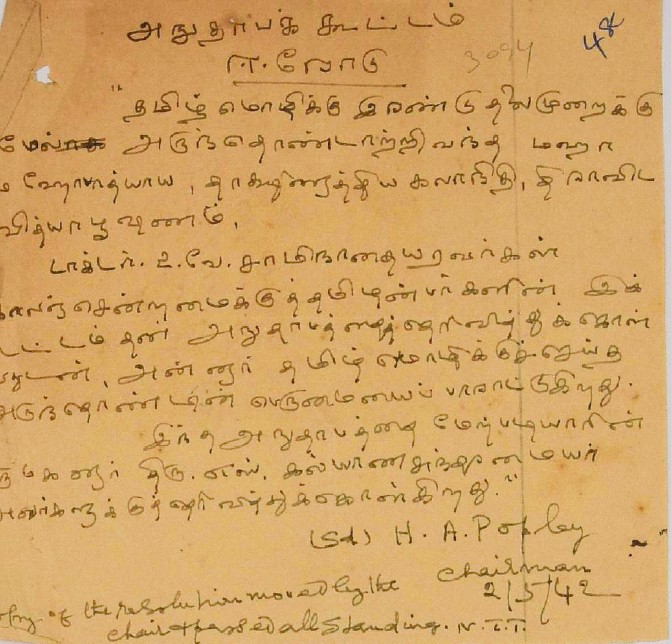 அநுதாபக் கூட்டம்
ஈரோடு
3094
48
"தமிழ் மொழிக்கு இரண்டு தலைமுறைக்கு
மேலாக அருந்தொண்டாற்றி வந்த மஹா
மஹோபாத்யாய, தாக்ஷிணாத்திய கலாநிதி, திராவிட
வித்யாபூஷணம்,
டாக்டர். உ.வே. சாமிநாதையரவர்கள்
காலஞ்சென்றமைக்குத் தமிழன்பர்களின் இக்
கூட்டம் தன் அநுதாபத்தைத் தெரிவித்துக் கொள்
வதுடன், அன்னார் தமிழ் மொழிக்குச் செய்த
அருந்தொண்டின் பெருமையைப் பாராட்டுகிறது.
இந்த அநுதாபத்தை மேற்படியாரின்
குமாரர் திரு. எஸ். கல்யாணசுந்தரமையர்
அவர்களுக்குத் தெரிவித்துக்கொள்கிறது."
(Sd) H. A. Popley
Chairman
2/5/42
Copy of the resolution moved by the
chair & passed all standing. N.T.T.